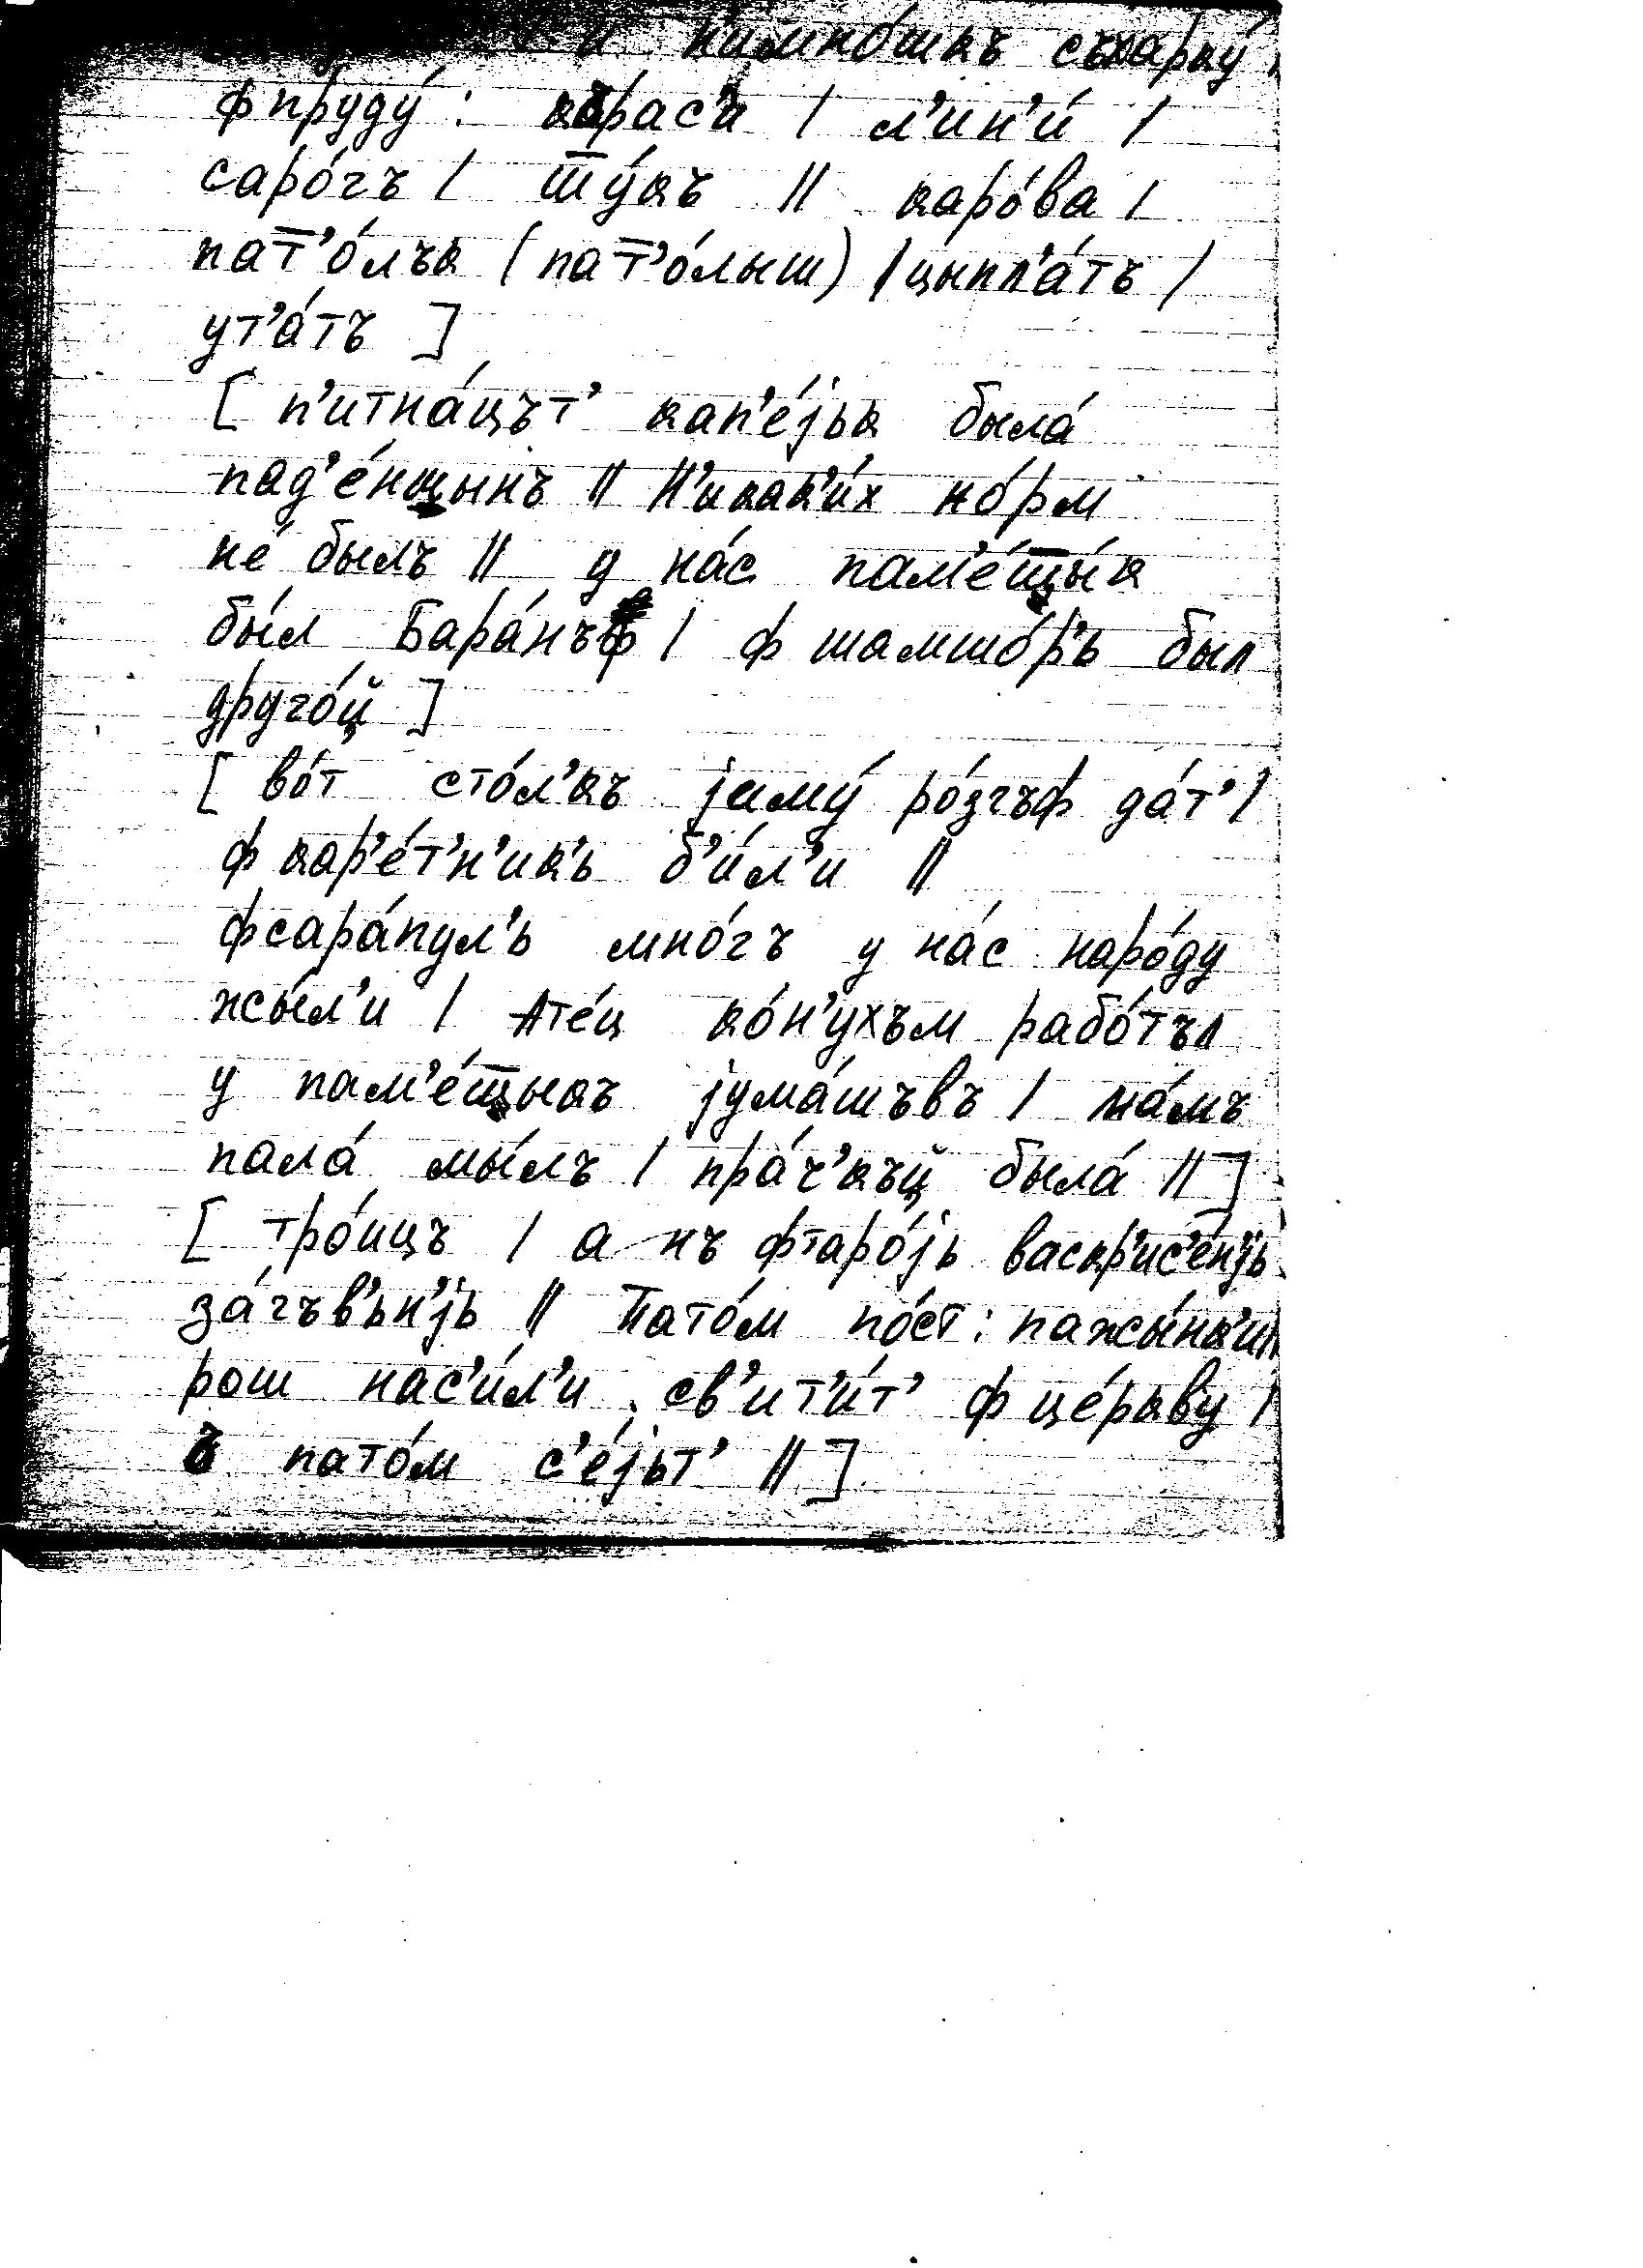 и н'имно́шкъ съхарку́
ф пруду́ : къраси́ / л'ин'и́ /
саро́гъ / ш̅у́къ // каро́ва /
пат̅'о́лък (пат̅'о́лыш) / цыпл'а́тъ /
ут'а́тъ ]
[ п'итна́цът' кап'е́јьк была́
пад'е́нщынъ // Н'икак'и́х но́рм
не́ былъ // у на́с пам'е́щы́к
бы́л Бара́нъф / ф шамшо́р'ь был
друго́й ]
[ во́т сто́л'къ јиму́ ро́згъф да́т' /
ф кар'е́т'н'ик'ь б'и́л'и //
фсара́пул'ь мно́гъ у на́с наро́ду
жы́л'и / Ате́ц ко́н'ухъм рабо́тъл
у пам'е́щыкъ јума́шъвъ / ма́мъ
пала́ мы́лъ / пра́ч'къй была́ // ]
[ тро́ицъ / а нъ фтаро́јь васкр'ис'е́н'јь
за́гъв'ьн'јь // Пато́м по́ст : пажы́нк'и
рош нас'и́л'и св'ит'и́т' ф це́ркву /
ъ пато́м с'е́јьт' // ]